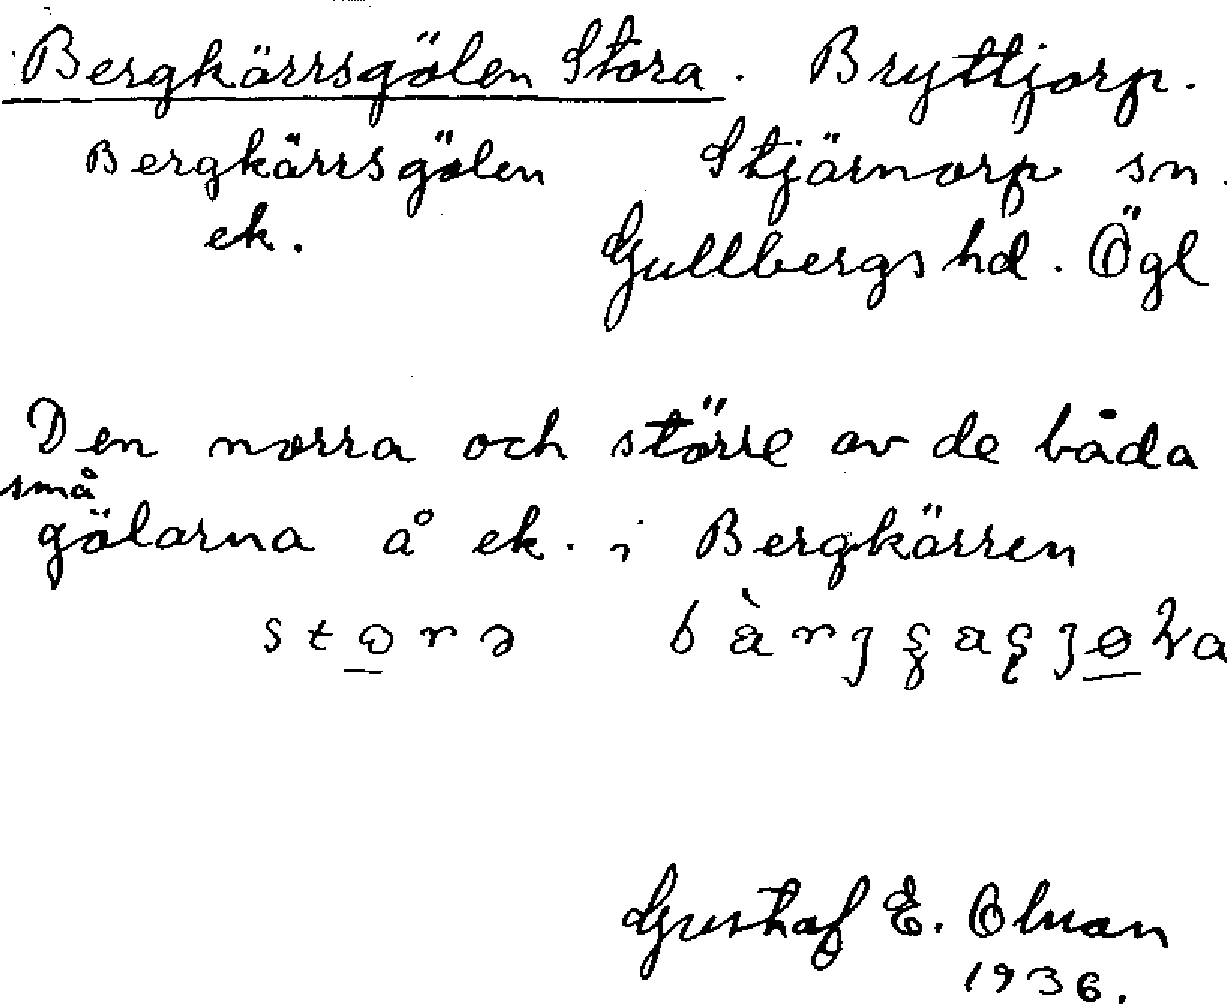 Bergkärrsgölen Stora. Bryttjorp.
Bergkärrsgölen Stjärnorp sn.
ek. Gullbergs hd. Ögl
Den norra och större av de båda
små
gölarna å ek. i Bergkärren
Gustaf E. Olman
1936.